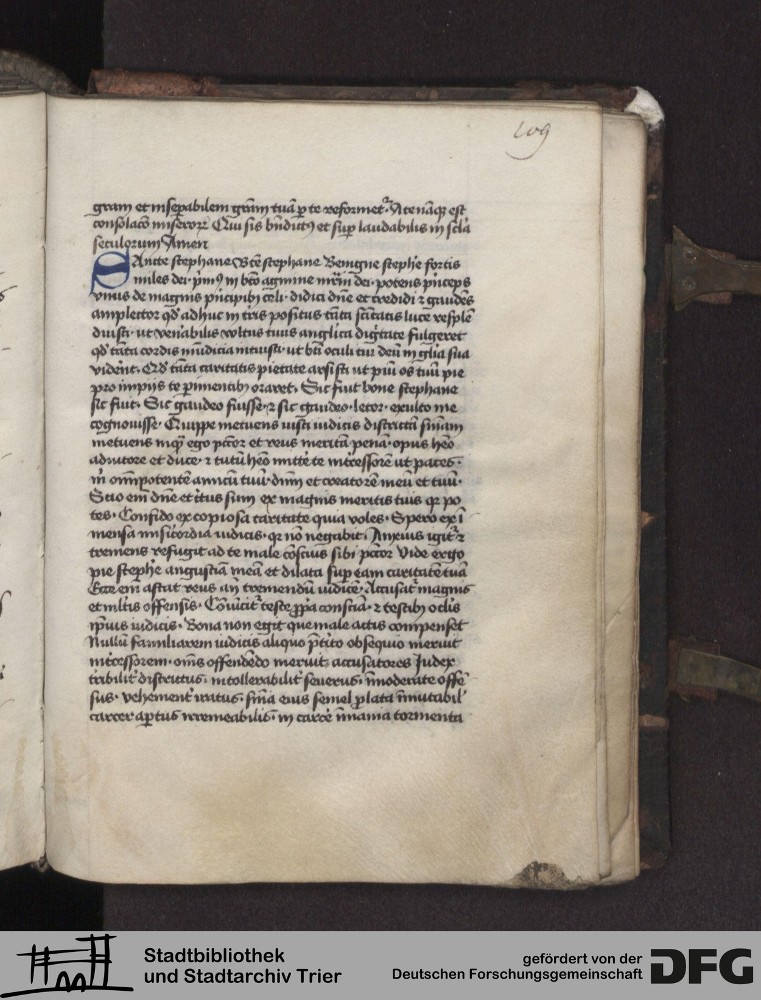 109
gratiam et inseparabilem gratiam tuam per te reformet. A te namque est
consolatio miserorum Qui sis benedictus et super laudabilis in secula
seculorum Amen
SAncte stephane Beate stephane Benigne stephane fortis
miles dei. primus in beato agmine martirum dei. potens princeps
vnus de magnis principibus celi. didici domine et credidi et gaudens
amplector quod adhuc in terris positus tanta sanctitatis luce resplen
duisti. ut venerabilis voltus tuus angelica dignitate fulgeret
quod tanta cordis mundicia intuisti. ut beati oculi tui deum in gloria sua
viderent. Quod tanta caritatis pietate arsisti ut pium os tuum pie
pro impiis te perimentibus oraret. Sic fuit bone stephane
sic fuit. Sic gaudeo fuisse. et sic gaudeo. letor. exulto me
cognouisse. Quippe metuens iusti iudicis districtam sententiam
metuens inquam ego peccator et reus meritam penam. opus habeo
adiutore et duce. et tutum habeo mittere te intercessorem ut places.
omnipotentem amicum tuum. dominum et creatorem meum et tuum.
Scio enim domine et certus sum ex magnis meritis tuis quia po
tes. Confido ex copiosa caritate quia voles. Spero ex in
mensa misericordia iudicis. quia non negabit. Anxius igitur et
tremens refugit ad te male conscius sibi peccator Vide ergo
pie stephane angustiam meam et dilata super eam caritatem tuam
Ecce enim astat reus ante tremendum iudicem. Accusatur magnis
et multis offensis. Conuincitur teste propria conscientia. et testibus oculis
ipsius iudicis. Bona non egit que male actis compenset
Nullum familiarem iudicis aliquo preterito obsequio meruit
intercessorem. omnes offendendo meruit accusatores Iudex
terribiliter districtus. intollerabiliter seuerus. inmoderate offen
sus. vehementer iratus. sententia eius semel prolata inmutabilis
carcer apertus irremeabilis. in carcere inmania tormenta
Stadtbibliothek
und Stadtarchiv Trier
gefördert von der
Deutschen Forschungsgemeinschaft
DFG